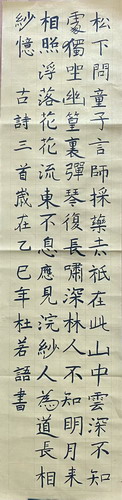 松下問童子言師採藥去祇在此山中雲深不知
處獨坐幽篁裏彈琴復長嘯深林人不知明月來
相照浮落花花流東不息應見浣紗人為道長相
紗憶 古詩三首歲在乙巳年杜若語書